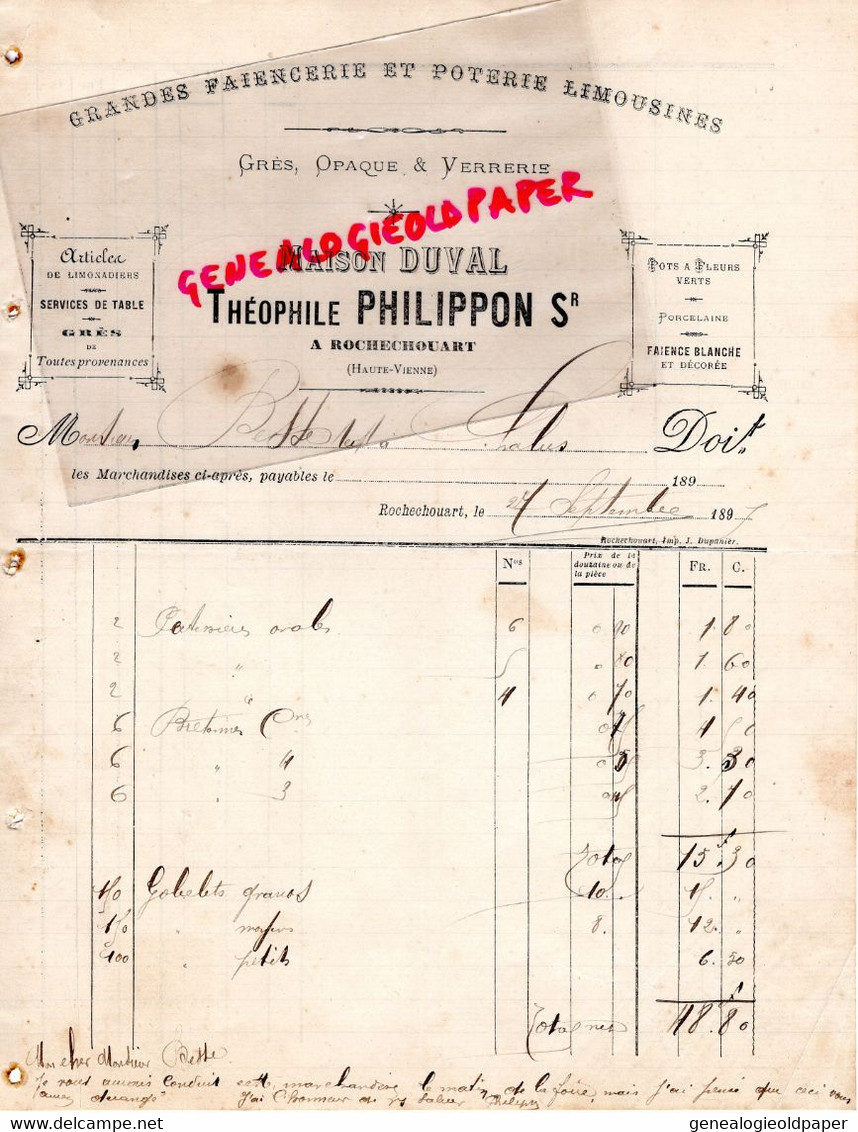 GRANDES FAIENCERIE ET POTERIE LIMOUSINES
GRÈS, OPAQUE & VERRERIE
GENEALOGIEOLDPAPER
MAISON DUVAL
THÉOPHILE PHILIPPON SR
A ROCHECHOUART
(HAUTE-VIENNE)
Articles
DE LIMONADIERS
SERVICES DE TABLE
GRÈS
DE
Toutes provenances
POTS A FLEURS
VERTS
PORCELAINE
FAIENCE BLANCHE
ET DÉCORÉE
Monsieur Bette à Chalus Doit
les Marchandises ci-après, payables le 189
Rochechouart, le 27 Septembre 1897
Rochechouart, Imp. J. Dupanier.
Nos Prix de la douzaine ou de la pièce FR. C.
2 ovales 6 0 90 1. 80
2 " 5 0 80 1. 60
2 " 4 0 70 1. 40
6 Bretonnes 4 50
6 " 4 0 55 3. 30
6 " 3 0 45 2. 70
Total 15. 30
150 Gobelets grands 10. 15. "
150 " moyens 8. 12. "
100 " petits 6. 50
48. 80
Mon cher Monsieur Bette.
Je vous aurais conduit cette marchandise le matin de la foire, mais j'ai pensé que ceci vous
J'ai l'honneur de vs saluer
genealogieoldpaper